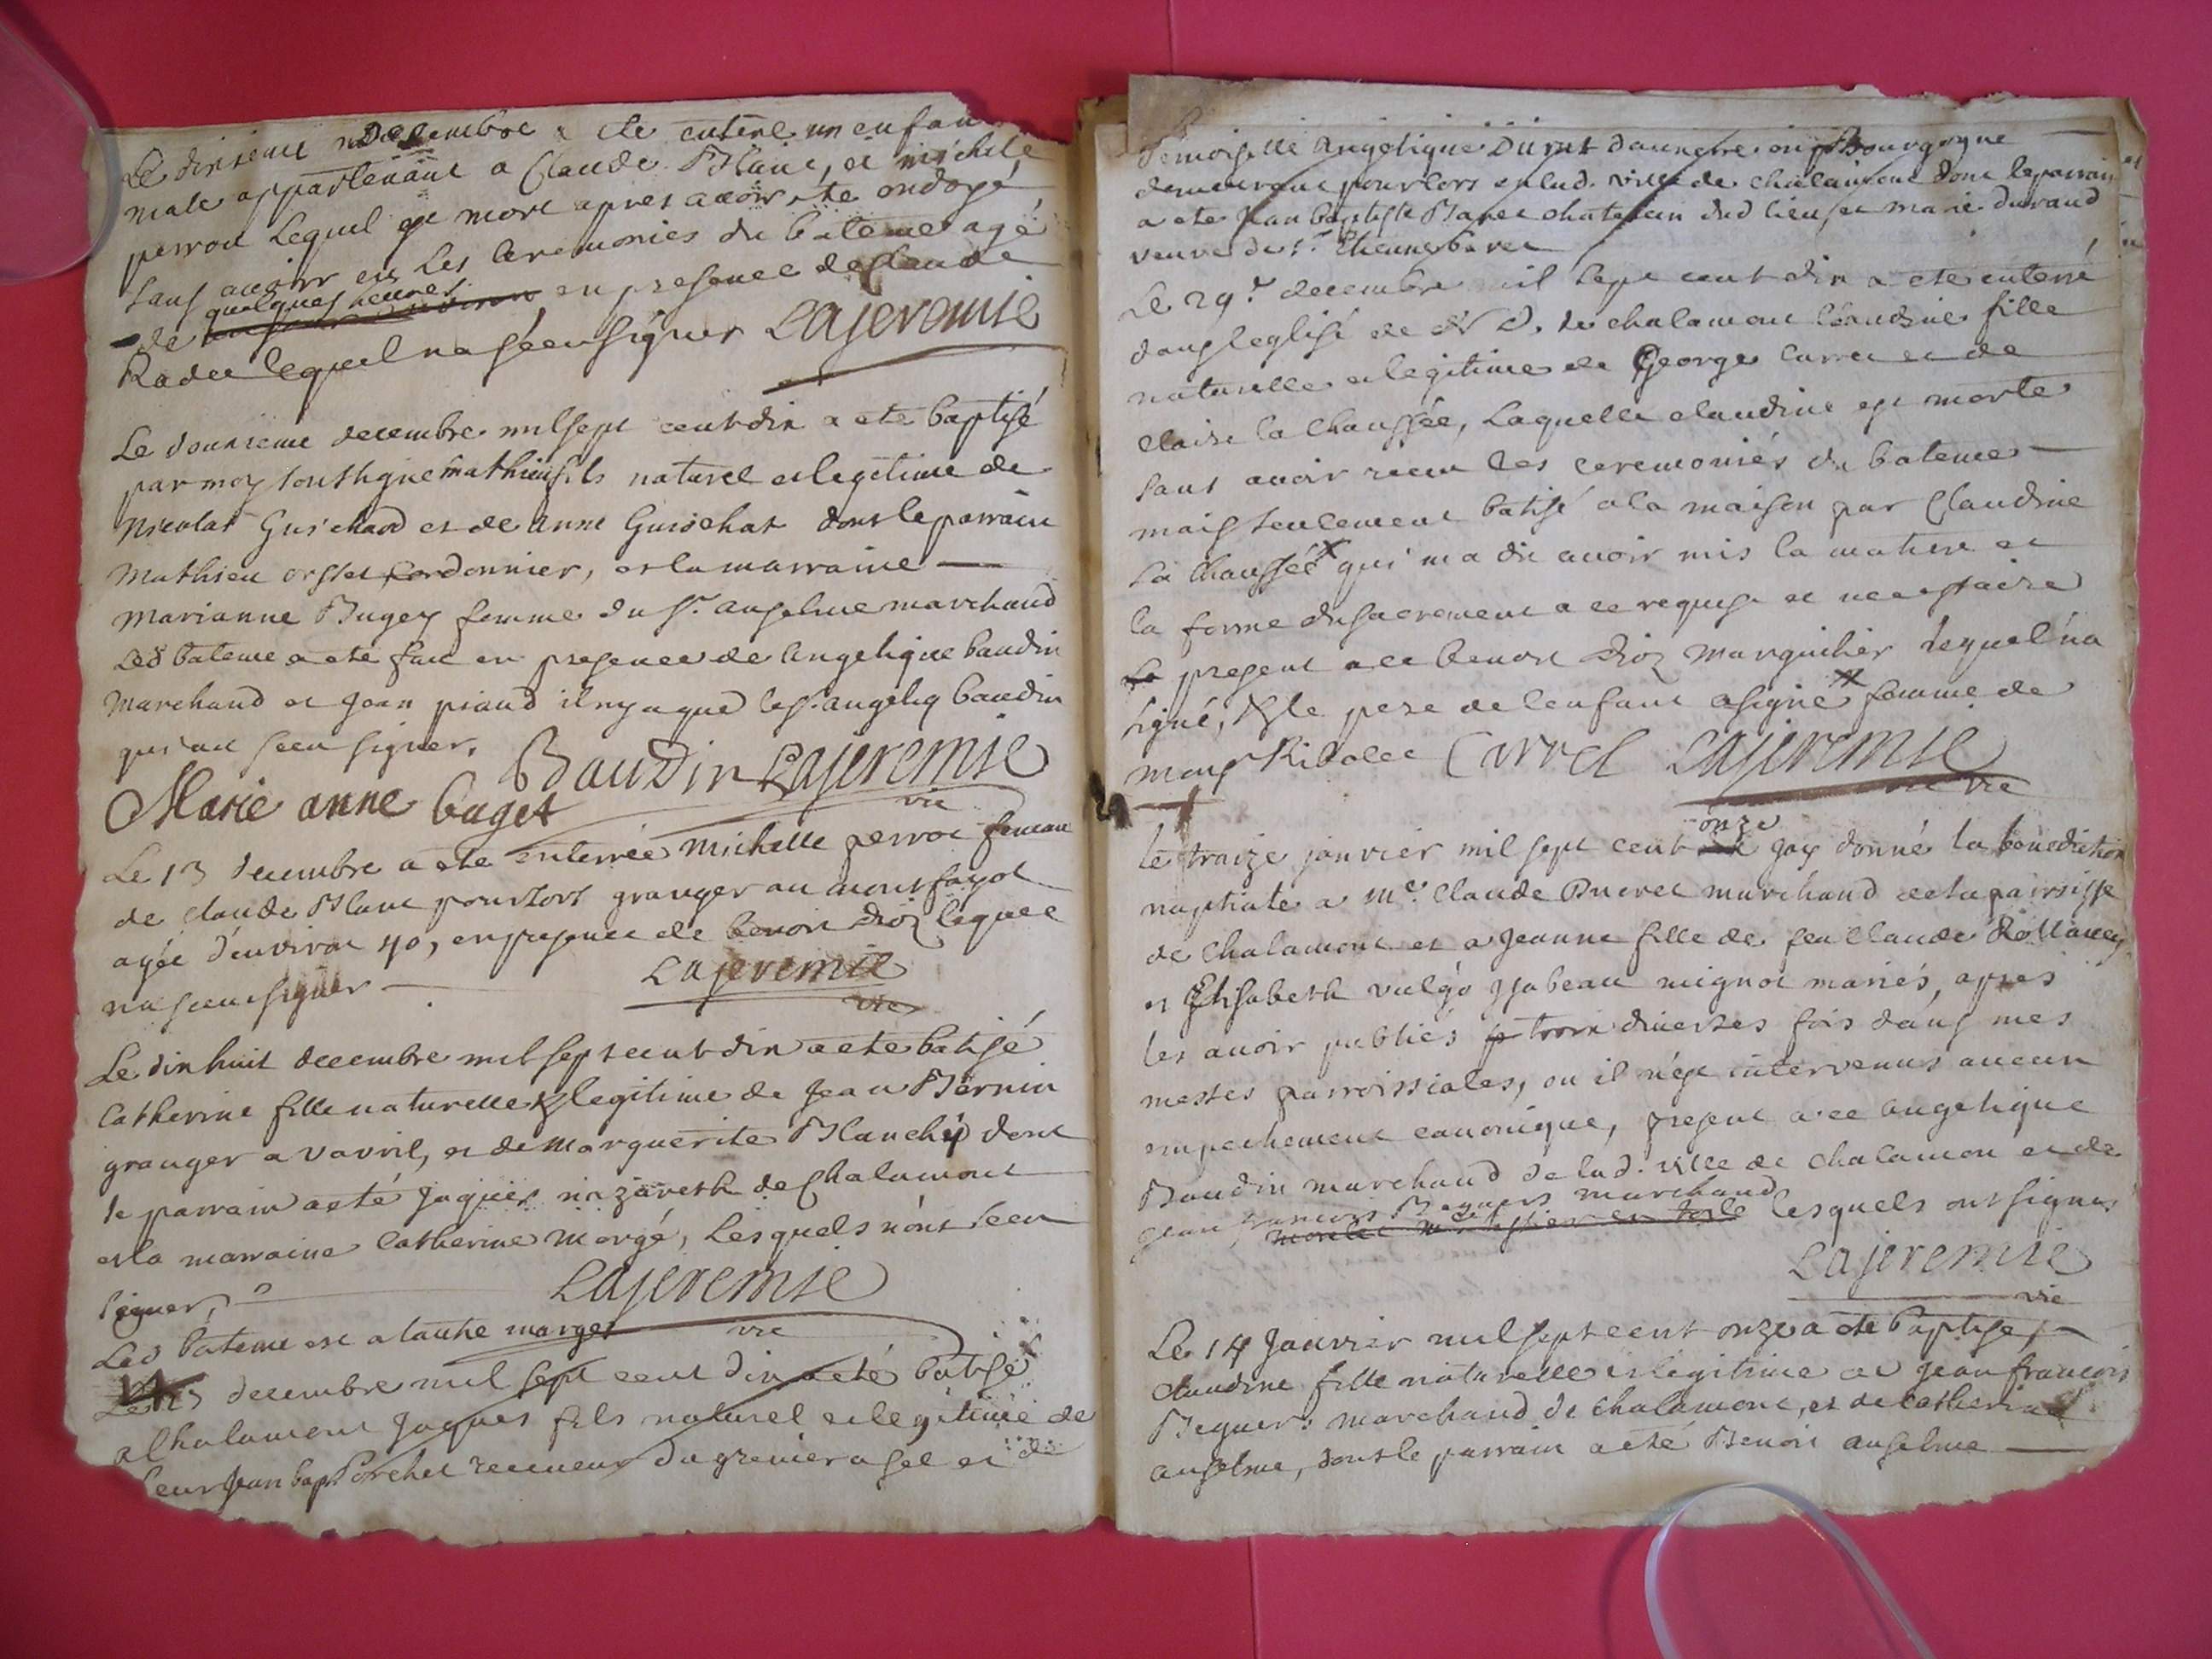 Le dixieme decembre a ete enterré un enfan
male appartenant a Claude Blanc, et michele
perrot Lequel est mort apres avoir ete ondoyé
sans avoir eu les ceremonies du bateme agé
quelques heures
de en presence de Claude
Radee lequel na sceu signer Lajeremie
Le douxieme decembre mil sept cent dix a ete baptisé
par moy soussigne mathieu fils naturel et legitime de
Nicolas Guichard et de anne Guichat dont le parrain
Mathieu orsset cordonnier, et la marraine
Marianne Bugey femme du sr. anselme marchand
led bateme a ete fait en presence de angelique baudin
Marchand et Jean piaud il ny a que le sr. angeliq baudin
qui ait sceu signer.
Baudin Lajeremie
vic
Marie anne buget
Le 13 decembre a ete enterrée michelle perrot femme
de claude Blanc pour lors granger au montfayol
agée d'environ 40, en presence de benoit droz lequel
na sceu signer Lajeremie
vic
Le dix huit decembre mil sept cent dix a ete batisé
Catherine fille naturelle & legitime de Jean Bernin
granger a vavril, et de marguerite Blanchy dont
le parrain a eté Jaques nazareth de Chalamont
et la marraine Catherine morgé, Lesquels n'ont sceu
signer,
Lajeremie
vic
Led bateme est a lautre marge
Le 23 decembre mil sept cent dix a eté batisé
a Chalamont Jaques fils naturel et legitime de
sieur Jean bapt Porchet receveur du grenier a sel et de
Demoiselle angelique Durut dauxerre en Bourgogne
demeurant pour lors en lad. ville de chalamont dont le parrain
a ete Jean baptiste Baret chatelain dud lieu, et marie durand
veuve de sr. Etienne baret
Le 29e decembre mil sept cent dix a ete enterré
dans leglise de N D. de chalamont Claudine fille
naturelle et legitime de George Carrel et de
Claire la Chaussée, Laquelle claudine est morte
sans avoir receu les ceremonies du bateme
mais seulement batisé a la maison par Claudine
La Chaussée x qui m a dit avoir mis la matiere et
la forme du sacrement a ce requise et necessaire
Le present a ce benoit droz marguilier lequel na
signé, & le pere de lenfant a signé x femme de
mons Ribolet Carrel Lajeremie
vic
onze
le traize janvier mil sept cent dix jay donné la benediction
nuptiale a Me. Claude Ducret marchand de la parroisse
de Chalamont et a Jeanne fille de feu Claude Rollancy
et Elisabeth vulgo ysabeau mignot mariés, apres
les avoir publiés trois diverses fois dans mes
messes parroissiales, ou il n'est intervenus aucun
empechement canonique, present a ce angelique
Baudin marchand de lad. ville de chalamon et de
Jean francois Beguers marchand lesquels ont signés
Lajeremie
vic
Le 14 Janvier mil sept cent onze a ete baptisé,
claudine fille naturelle et legitime de Jean francois
Beguers marchand de chalamont, et de Catherine
anselme, dont le parrain a eté Benoit anselme